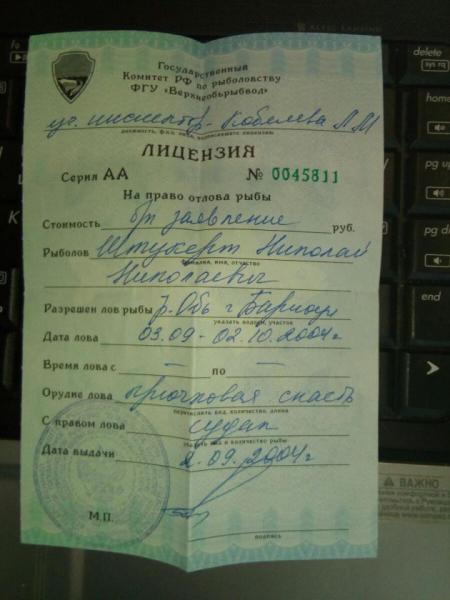 Государственный
Комитет РФ по рыболовству
ФГУ «Верхнеобьрыбвод»
инспектор - Кобелева Л.М
должность, ф.и.о. лица, выписавшего лицензию
ЛИЦЕНЗИЯ
Серия АА № 0045811
На право отлова рыбы
Стоимость б/п заявление руб.
Рыболов Штукерт Николай
фамилия, имя, отчество
Николаевич
Разрешен лов рыбы р. Обь г Барнаул
указать водоем, участок
Дата лова 03.09 - 02.10.2004г
Время лова с — по —
Орудие лова крючковая снасть
перечислить вид, количество, длина
С правом лова судак
указать вид и количество рыбы
Дата выдачи 2.09.2004г
М.П.
подпись
delete
sys rq
home
pg up
pg dn
end
K
ВАЖНО